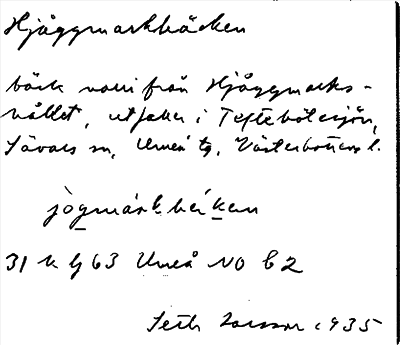 Hjåggmarkbäcken
bäck norrifrån Hjåggmarks-
utfaller i Teftebölesjön,
Sävars sn, Umeå tg, Västerbottens l.
jògmárkbeíken
31 Umeå NO b2
Seth Larsson 1935